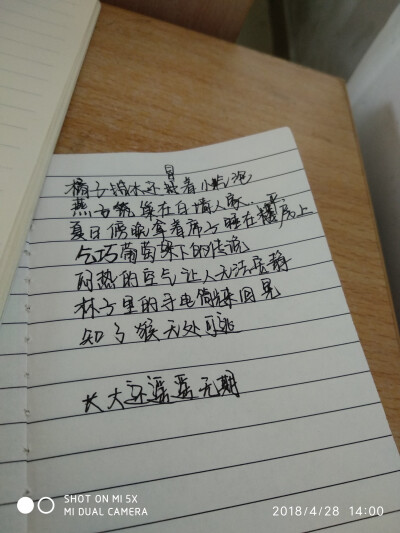 橘子汽水还冒着小气泡
燕子筑巢在白墙人家
夏日傍晚拿着席子睡在楼房上
乞巧葡萄架下的传说
闷热的空气让人无法安静
林子里的手电筒来回晃
知了猴无处可逃
长大还遥遥无期
SHOT ON MI 5X
MI DUAL CAMERA
2018/4/28 14:00